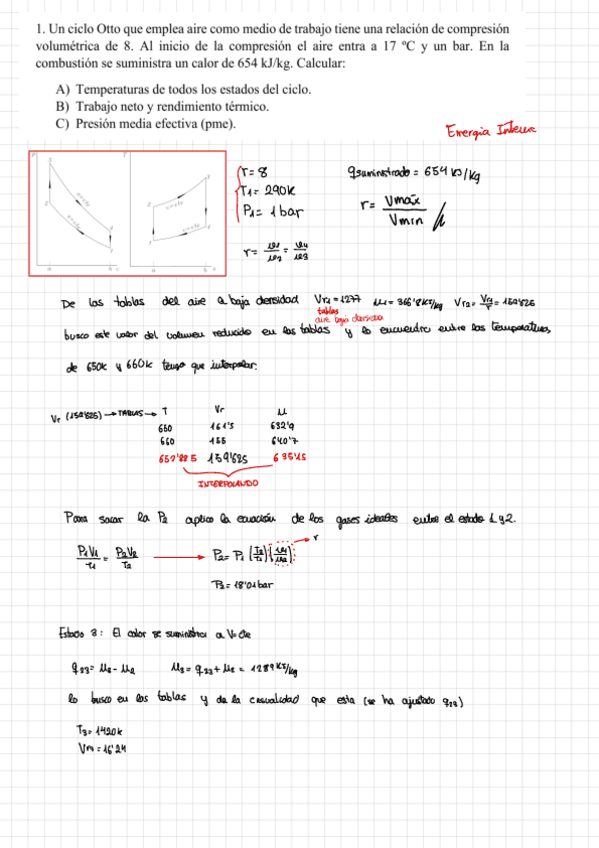 1. Un ciclo Otto que emplea aire como medio de trabajo tiene una relación de compresión
volumétrica de 8. Al inicio de la compresión el aire entra a 17 ºC y un bar. En la
combustión se suministra un calor de 654 kJ/kg. Calcular:
A) Temperaturas de todos los estados del ciclo.
B) Trabajo neto y rendimiento térmico.
C) Presión media efectiva (pme).
Energía
r = 8
T1 = 290K
P1 = 1 bar
qsuministrado = 654 kJ/kg
r = Vmax / Vmin
r = v1/v2 = v4/v3
De las tablas del aire a baja densidad Vr1 = 1277 u1 = Vr2 = Vr1/r = 159'625
tablas
aire baja densidad
busco este valor del volumen reducido en las tablas y lo encuentro entre las temperaturas
de 650K y 660K tengo que interpolar:
Vr (159'625) → TABLAS → T Vr u
161'5
660 155 640'7
159'625 635'15
INTERPOLANDO
Para sacar la P2 aplico la ecuación de los gases ideales entre el estado 1 y 2.
P1V1/T1 = P2V2/T2 → P2 = P1 (T2/T1)(v1/v2) r
P2 = 18'01 bar
Estado 3: El calor se suministra a V=cte
q23 = u3 - u2 u3 = q23 + u2 = 1289 kJ/kg
lo busco en las tablas y da la casualidad que esta (se ha ajustado q23)
T3 = 1420K
Vr3 = 16'24